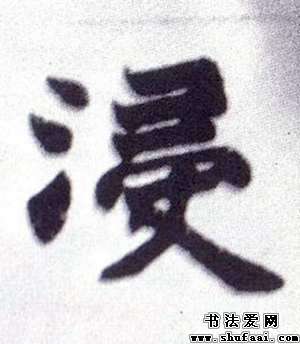 浸
书法爱网
www.shufaai.com